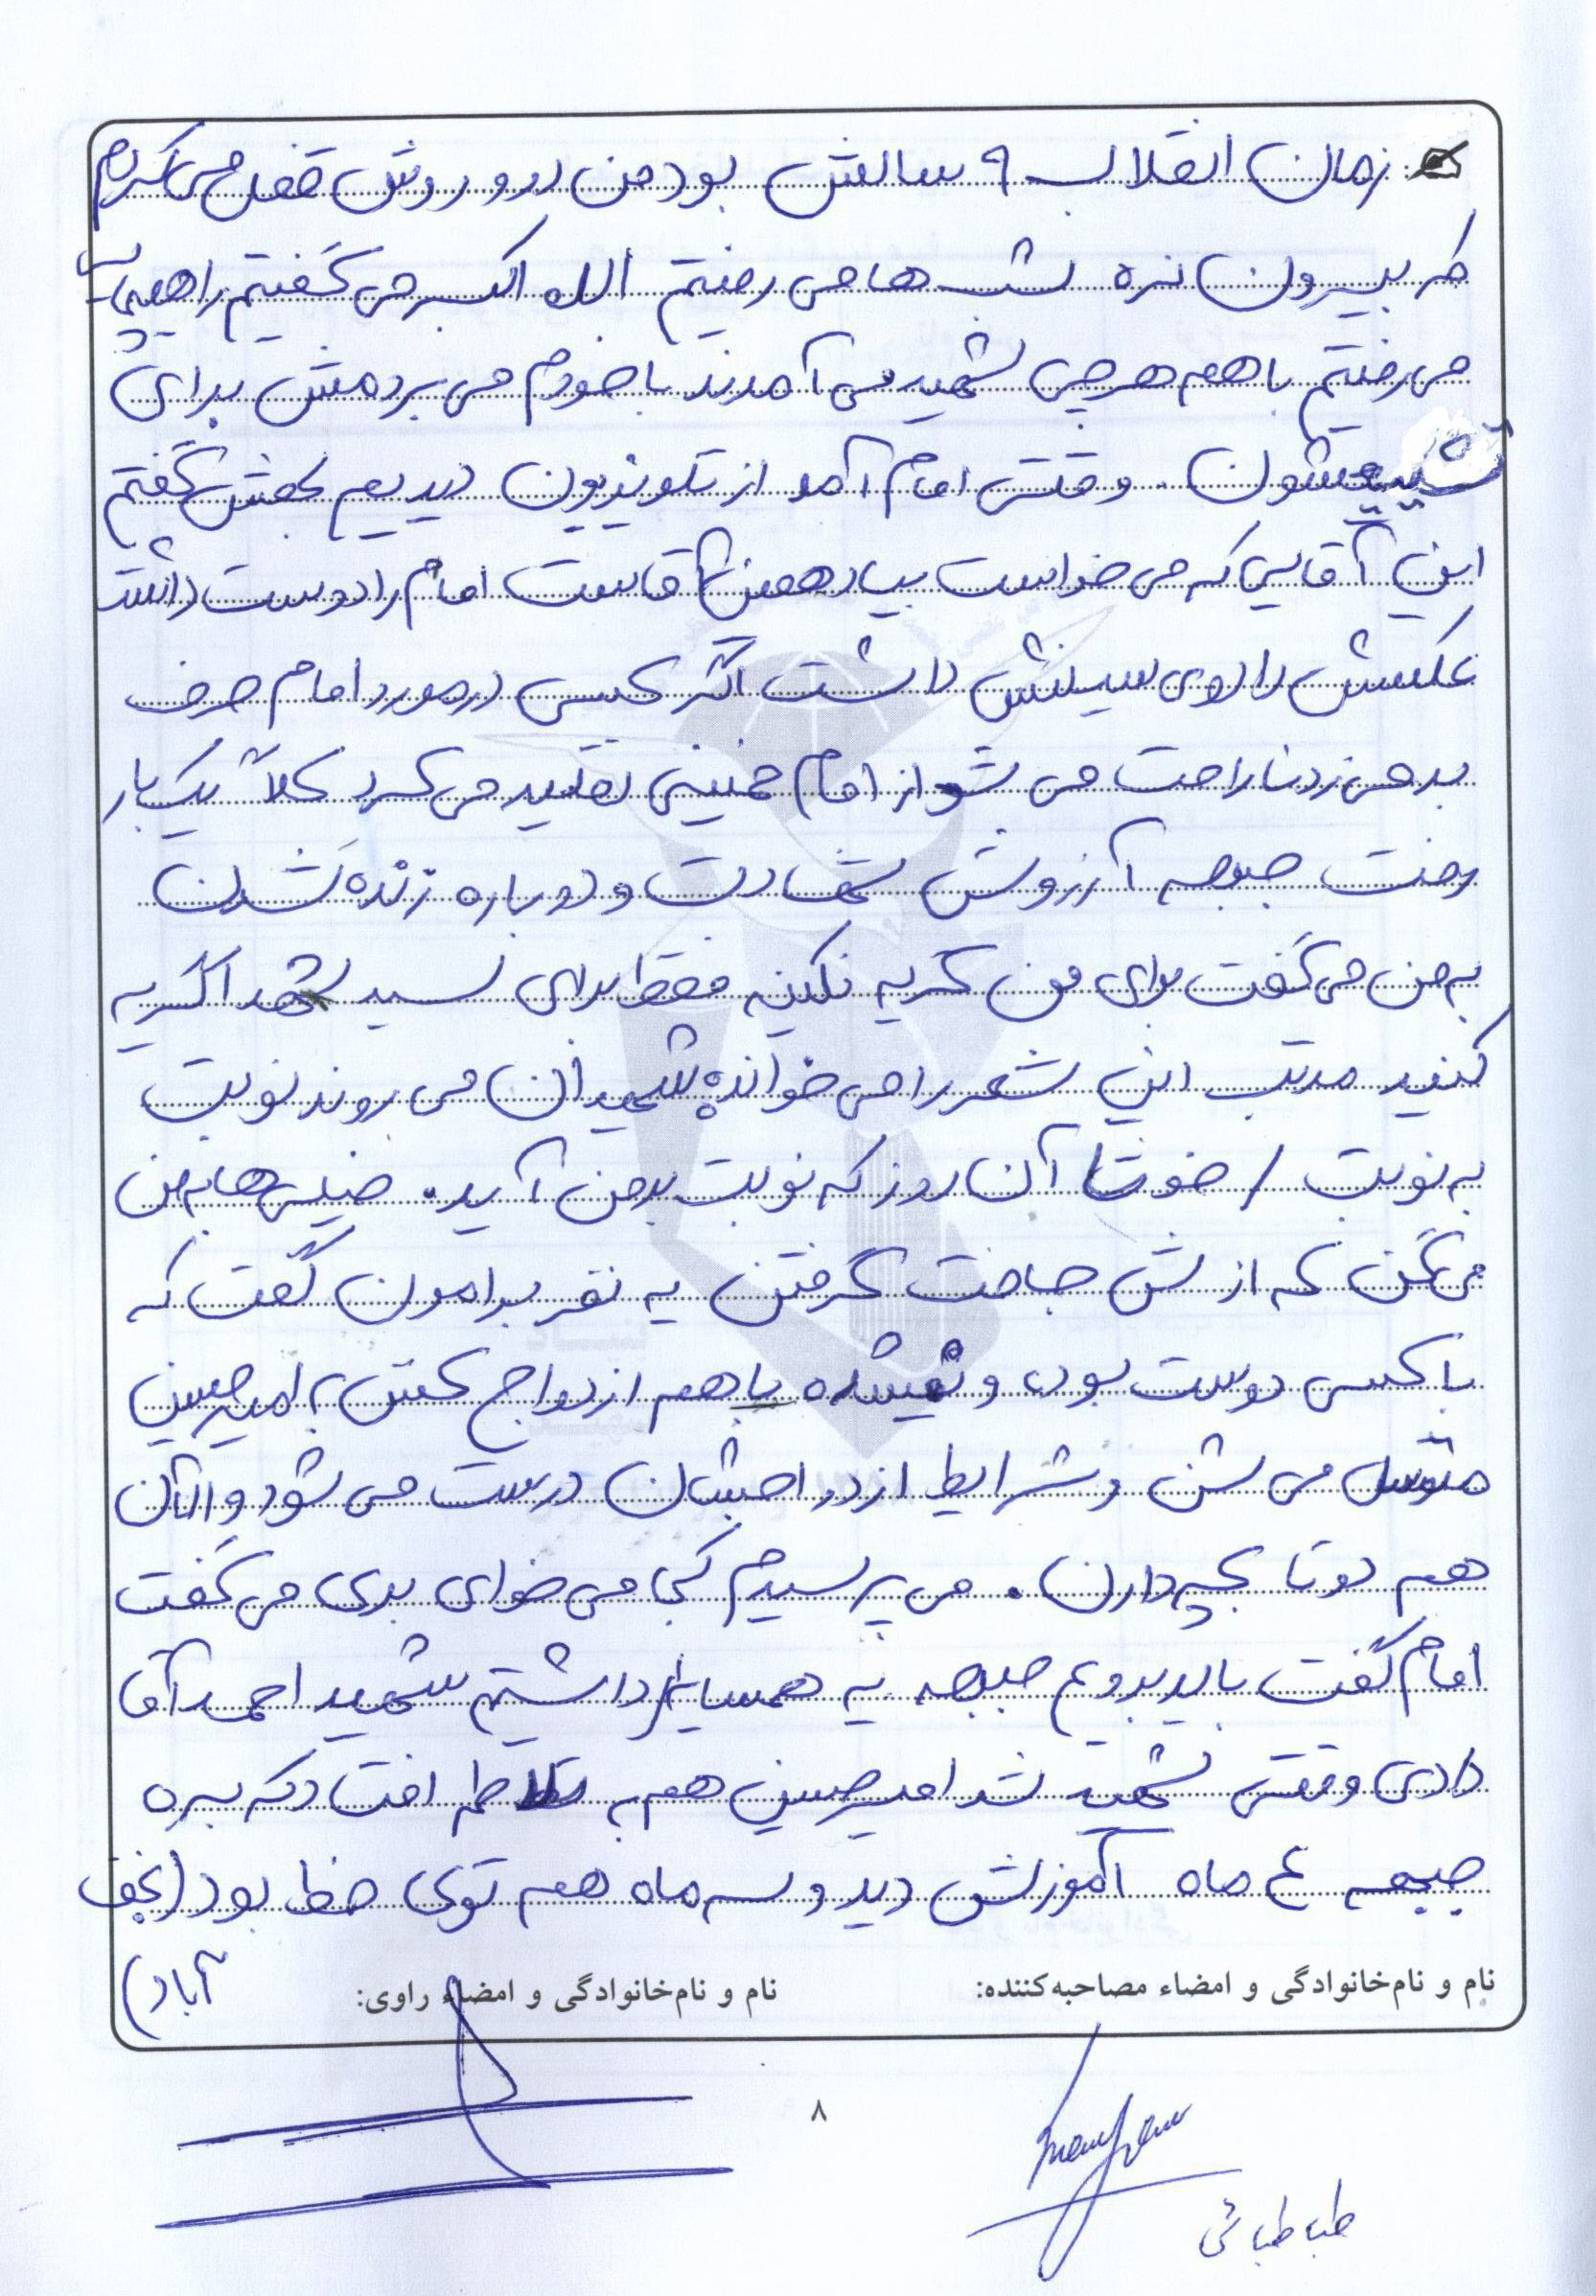 زمان انقلاب ۹ سالش بود من در و روش قفل می کردم
که بیرون نره شب ها می رفتیم الله اکبر می گفتیم راهپیمایی
می رفتیم با هم هر چی شهید می آمدند با خودم می بردمش برای
تشییعشون. وقتی امام آمد از تلویزیون دیدیم بهش گفتم
این آقایی که می خواست بیاد همین آقاست امام را دوست داشت
عکسش را روی سینش داشت اگر کسی در مورد امام حرف
بد می زد ناراحت می شد از امام خمینی تقلید می کرد کلا یک بار
رفت جبهه آرزوش شهادت و دوباره زنده شدن
به من می گفت برای من گریه نکنید فقط برای سید شهدا گریه
کنید مرتب این شعر را می خوانده شهیدان می روند نوبت
به نوبت / خوشا آن روز که نوبت بر من آید. خیلی ها به من
می گن که ازش حاجت گرفتن یه نفر برامون گفت که
با کسی دوست بودن و نمیشده با هم ازدواج کنن به امیرحسین
متوسل می شن و شرایط ازدواجشان درست می شود و الان
هم دوتا بچه دارن. می پرسیدم کجا می خوای بری می گفت
امام گفت باید برویم جبهه یه همسایه داشتیم شهید احمد آقا
دادی وقتی شهید شد امیرحسین هم به تلاطم افتاد که بره
جبهه ۴ ماه آموزش دید و سه ماه هم توی خط بود (نجف
آباد)
نام و نام‌خانوادگی و امضاء مصاحبه‌کننده:
نام و نام‌خانوادگی و امضاء راوی:
۸
طباطبائی